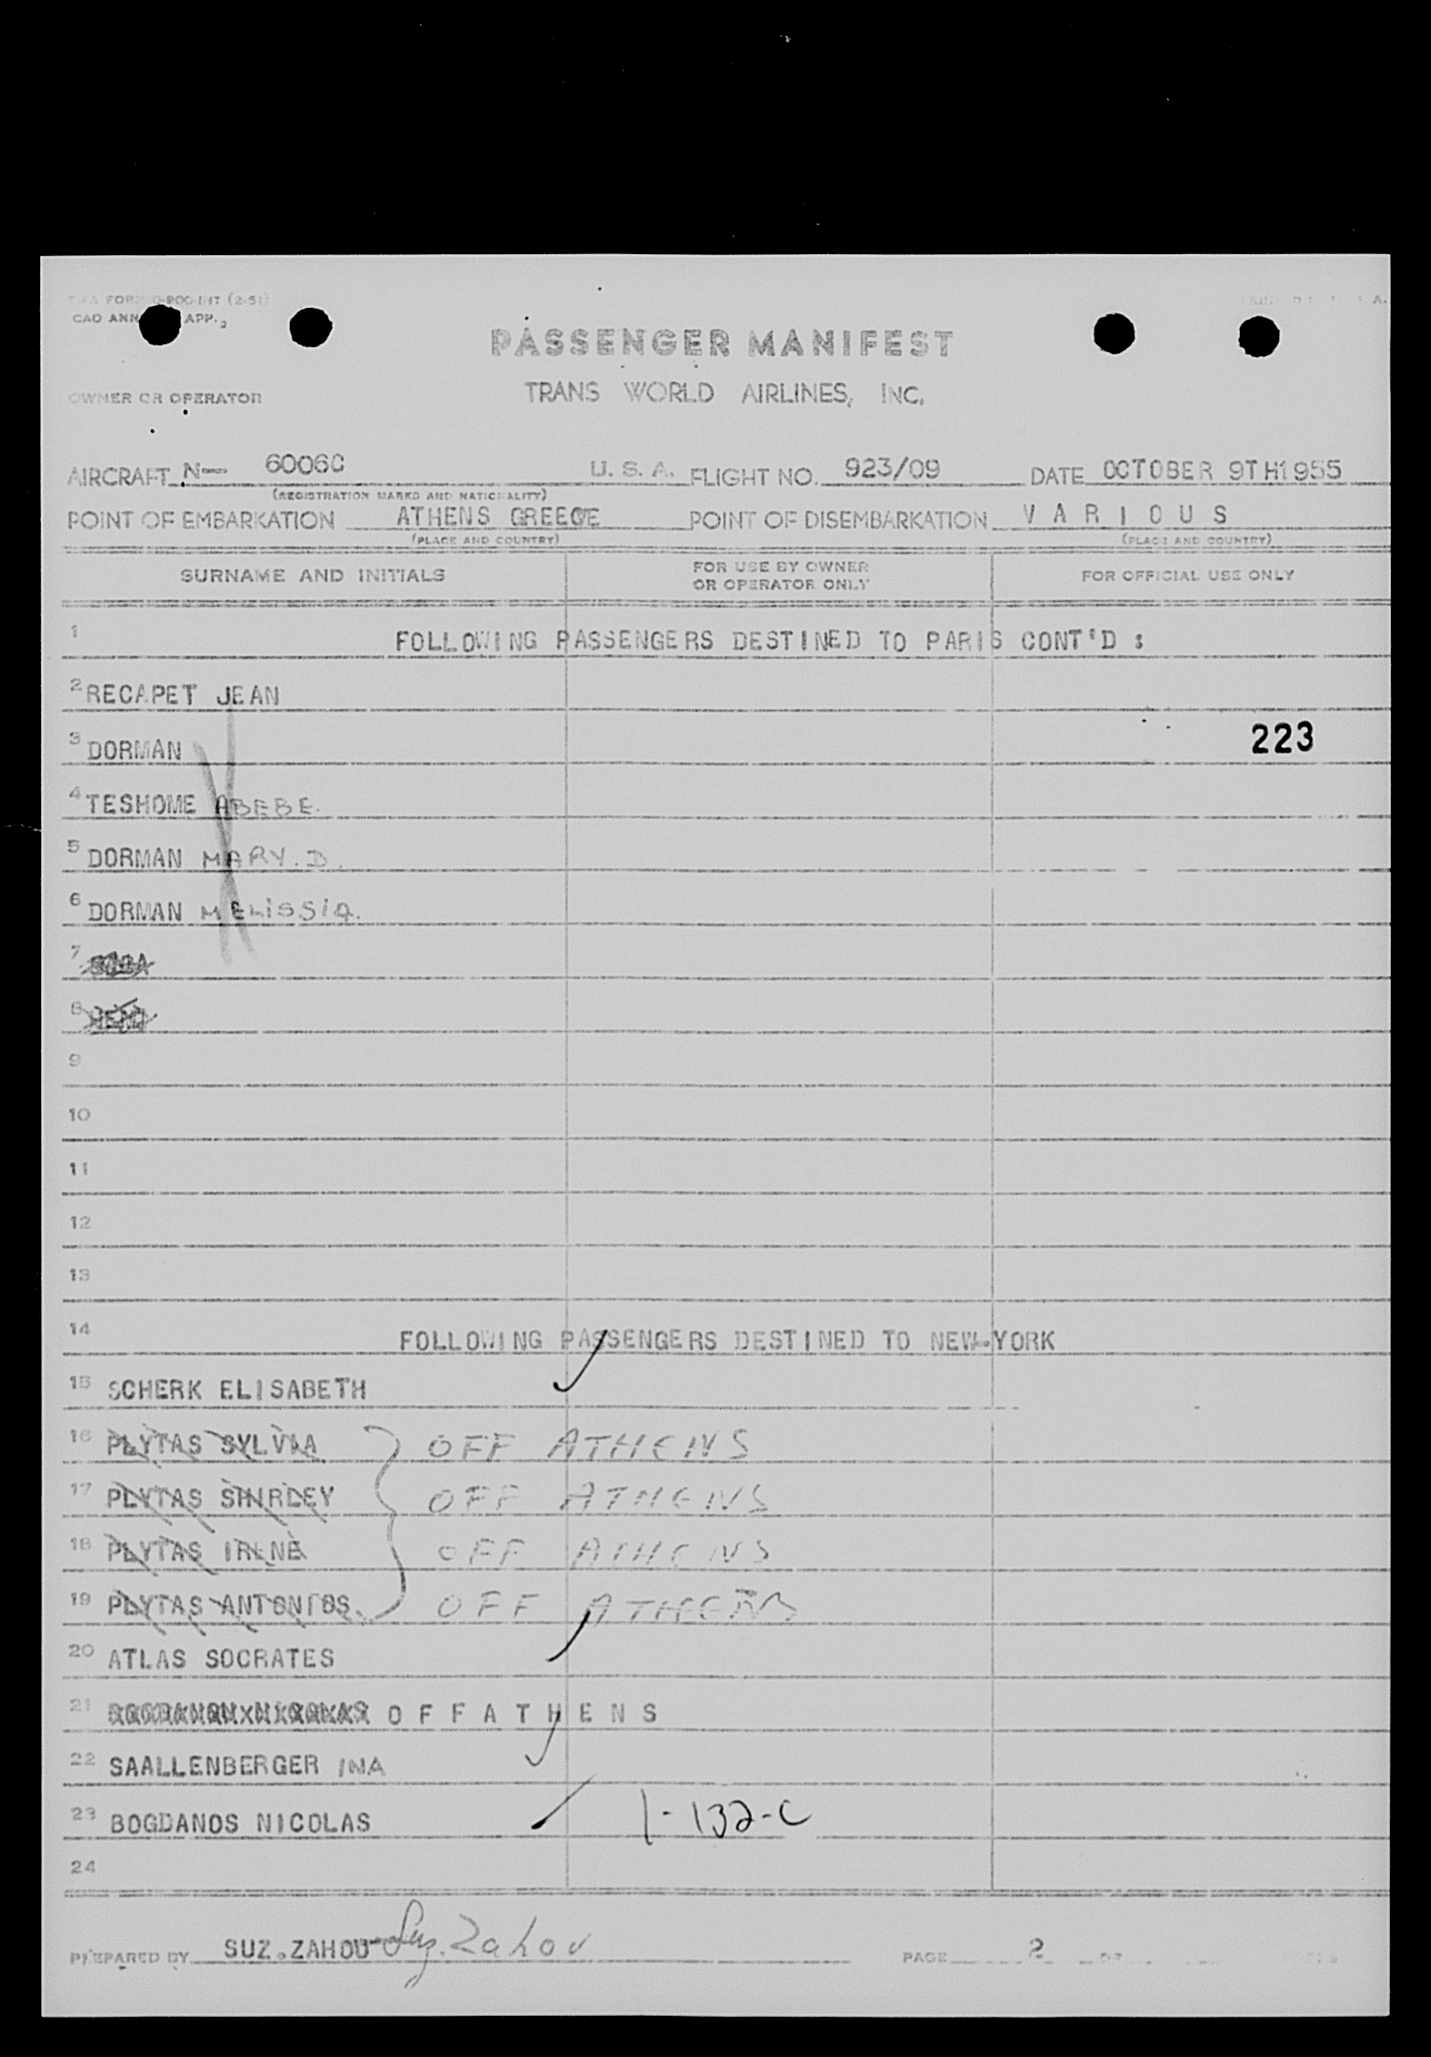 CAO ANN APP. 2
PASSENGER MANIFEST
OWNER OR OPERATOR TRANS WORLD AIRLINES, INC.
AIRCRAFT N-- 6006C U. S. A. FLIGHT NO. 923/09 DATE OCTOBER 9TH1955
(REGISTRATION MARKS AND NATIONALITY)
POINT OF EMBARKATION ATHENS GREECE POINT OF DISEMBARKATION V A R I O U S
(PLACE AND COUNTRY) (PLACE AND COUNTRY)
SURNAME AND INITIALS FOR USE BY OWNER OR OPERATOR ONLY FOR OFFICIAL USE ONLY
1 FOLLOWING PASSENGERS DESTINED TO PARIS CONT'D :
2 RECAPET JEAN
3 DORMAN 223
4 TESHOME ABEBE.
5 DORMAN MARY. D.
6 DORMAN MELISSIA.
7
8
9
10
11
12
13
14 FOLLOWING PASSENGERS DESTINED TO NEW-YORK
15 SCHERK ELISABETH
16 PLYTAS SYLVIA OFF ATHENS
17 PLYTAS SHIRLEY OFF ATHENS
18 PLYTAS IRENE OFF ATHENS
19 PLYTAS ANTONIOS OFF ATHENS
20 ATLAS SOCRATES
21 O F F A T H E N S
22 SAALLENBERGER INA
23 BOGDANOS NICOLAS 1-132-C
24
PREPARED BY SUZ.ZAHOU Suz. Zahov PAGE 2